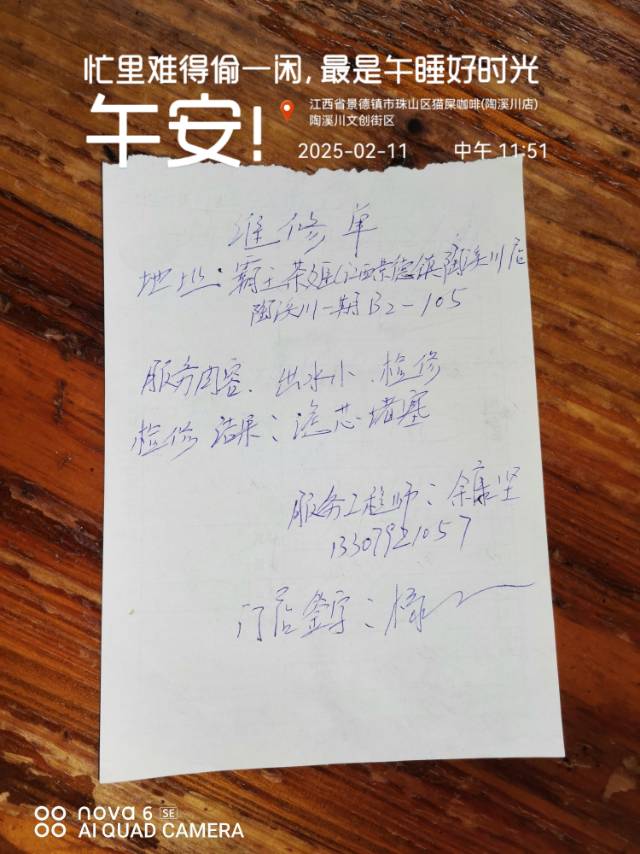 忙里难得偷一闲，最是午睡好时光
午安！
江西省景德镇市珠山区猫屎咖啡(陶溪川店)
陶溪川文创街区
2025-02-11 中午 11:51
维修单
地址：霸王茶姬(江西景德镇陶溪川店
陶溪川一期B2-105
服务内容、出水小、检修
检修结果：滤芯堵塞
服务工程师：余康坚
13307921057
门店签字：
nova 6 SE
AI QUAD CAMERA